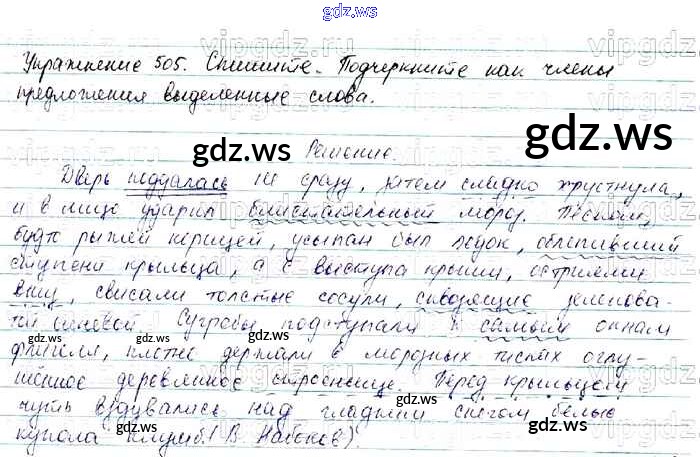 gdz.ws
Упражнение 505. Спишите. Подчеркните как члены
предложения выделенные слова.
gdz.ws
gdz.ws
Решение.
Дверь подалась не сразу, затем сладко хрустнула,
и в лицо ударил блистательный мороз. Песком,
будто рыжей корицей, усыпан был ледок, облепивший
ступени крыльца, а с выступа крыши, остриями
вниз, свисали толстые сосули, сквозящие зеленова-
той синевой. Сугробы подступали к самым окнам
флигеля, плотно держали в морозных тисках оглу-
шённое деревянное строеньице. Перед крыльцом
чуть вздувались над гладким снегом белые
купола клумб. (В. Набоков)
gdz.ws
gdz.ws